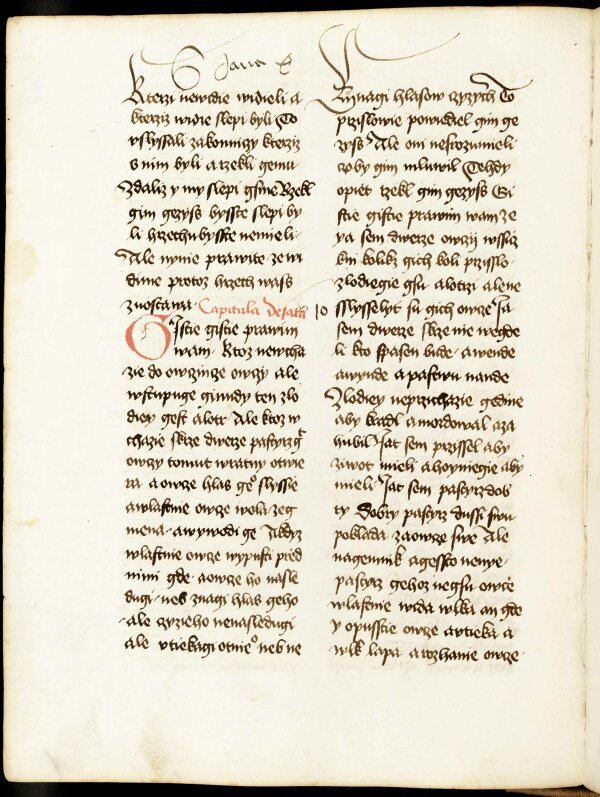 S Jana X
Kterzi newidie widieli a
kterziz widie slepi byli To
vslyssali zakonnizy kterziz
s nim byli a rzekli gemu
Zdaliz y my slepi gsme Rzekl
gim gezyss bysste slepi by
li hrzechu bysste nemieli
Ale nynie prawite ze wi
dime protoz hrzech wass
zuostawa Capitula desata 10
Gistie gistie prawim
wam Ktoz newcha
zie do owczincze owczy ale
wstupuge ginudy ten zlo
diey gest a lotr Ale ktoz w
chazie skrze dwerze pastyrz gt
owczy tomut wratny otwie
ra a owcze hlas geo slyssie
a wlastnie owcze wola zeg
mena a wywodi ge A kdyz
wlastnie owcze wypusti przed
nimi gde a owcze ho nasle
dugi neb znagi hlas geho
ale czyzieho nenasledugi
ale vtiekagi ot nieo neb ne
znagi hlasow czyzych To
przislowie powiediel gim ge
zyss Ale oni nesrozumieli
czo by gim mluwil Tehdy
opiet rzekl gim gezyss Gi
stie gistie prawim wam ze
ya sem dwerze owczij wssiz
kni kolikz gich koli przisslo
zlodiegie gsu a lotrzi ale ne
slysselyt su gich owcze Ja
sem dwerze skrze mie wegde
li kto spasen bude a wende
a wynde a pastwu nande
Zlodiey neprzichazie gedine
aby kradl a mordowal a za
hubil Jat sem przissel aby
ziwot mieli a hoyniegie aby
mieli Jat sem pastyrz dob
ry Dobry pastyrz dussi swu
poklada za owcze swe Ale
nagemnik a gessto nenye
pastyrz gehoz negsu owce
wlastnie wida wlka an gde
y opusstie owcze a vtieka a
wlk lapa a rozhanie owcze